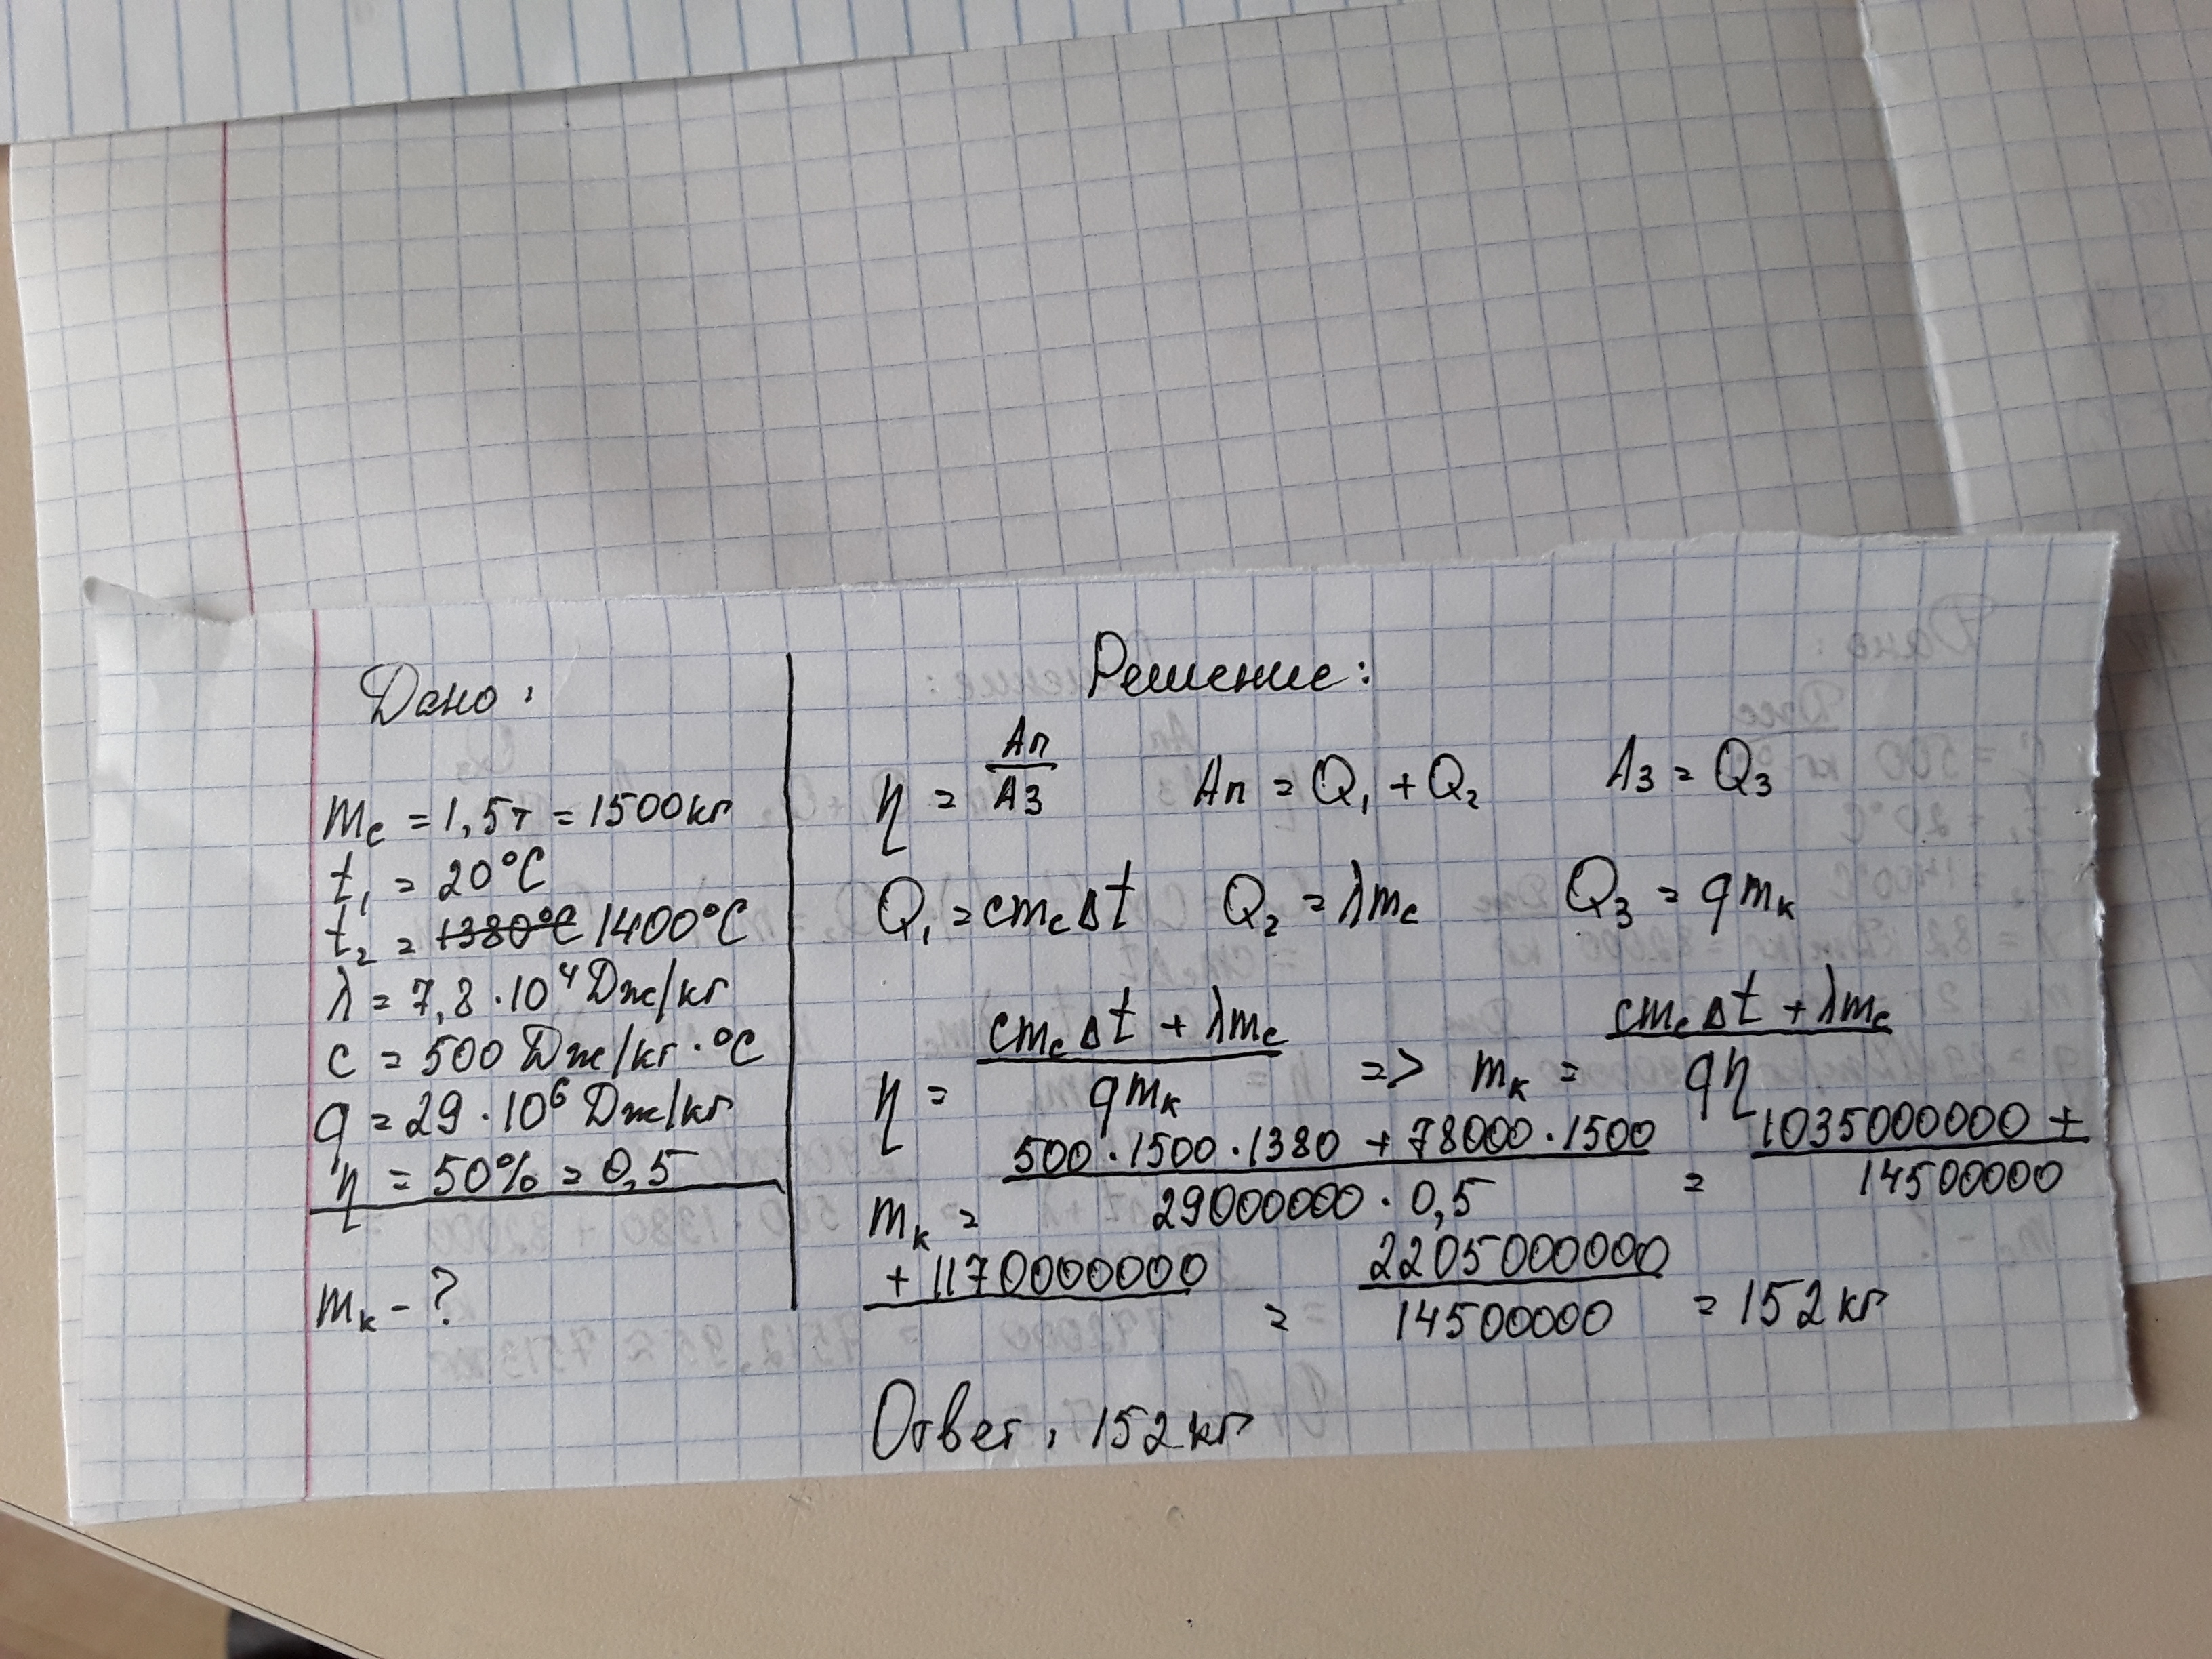 Дано:
mс = 1,5т = 1500кг
t₁ = 20°C
t₂ = 1380°C 1400°C
λ = 7,8 · 10⁴ Дж/кг
c = 500 Дж/кг · °C
q = 29 · 10⁶ Дж/кг
η = 50% = 0,5
mк - ?
Решение:
η = Aп/Aз Aп = Q₁ + Q₂ Aз = Q₃
Q₁ = cmсΔt Q₂ = λmс Q₃ = qmк
η = (cmсΔt + λmс)/(qmк) => mк = (cmсΔt + λmс)/(qη)
mк = (500 · 1500 · 1380 + 78000 · 1500)/(29000000 · 0,5) = (1035000000 +)/(14500000)
+ 1170000000 = 2205000000/14500000 = 152 кг
Ответ: 152 кг